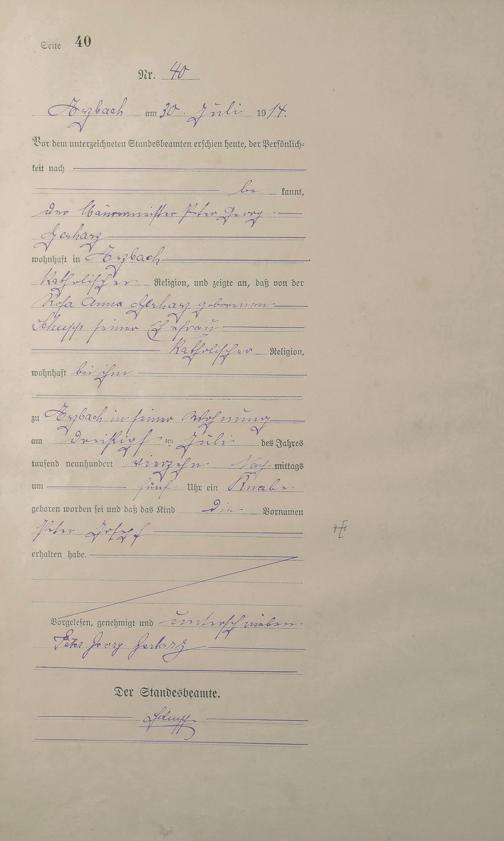 Seite 40
Nr. 40
Arzbach am 30. Juli 1914.
Vor dem unterzeichneten Standesbeamten erschien heute, der Persönlich-
keit nach
be kannt,
der Peter Georg
Gerharz
wohnhaft in Arzbach
Katholischer Religion, und zeigte an, daß von der
Rosa Anna Gerharz geborenen
seiner Ehefrau
Katholischer Religion,
wohnhaft bei ihm
zu Arzbach in seiner Wohnung
am dreißigsten Juli des Jahres
tausend neunhundert vierzehn Nach mittags
um fünf Uhr ein Knabe
geboren worden sei und daß das Kind die Vornamen
Peter Josef
erhalten habe.
Vorgelesen, genehmigt und unterschrieben
Peter Georg Gerharz
Der Standesbeamte.